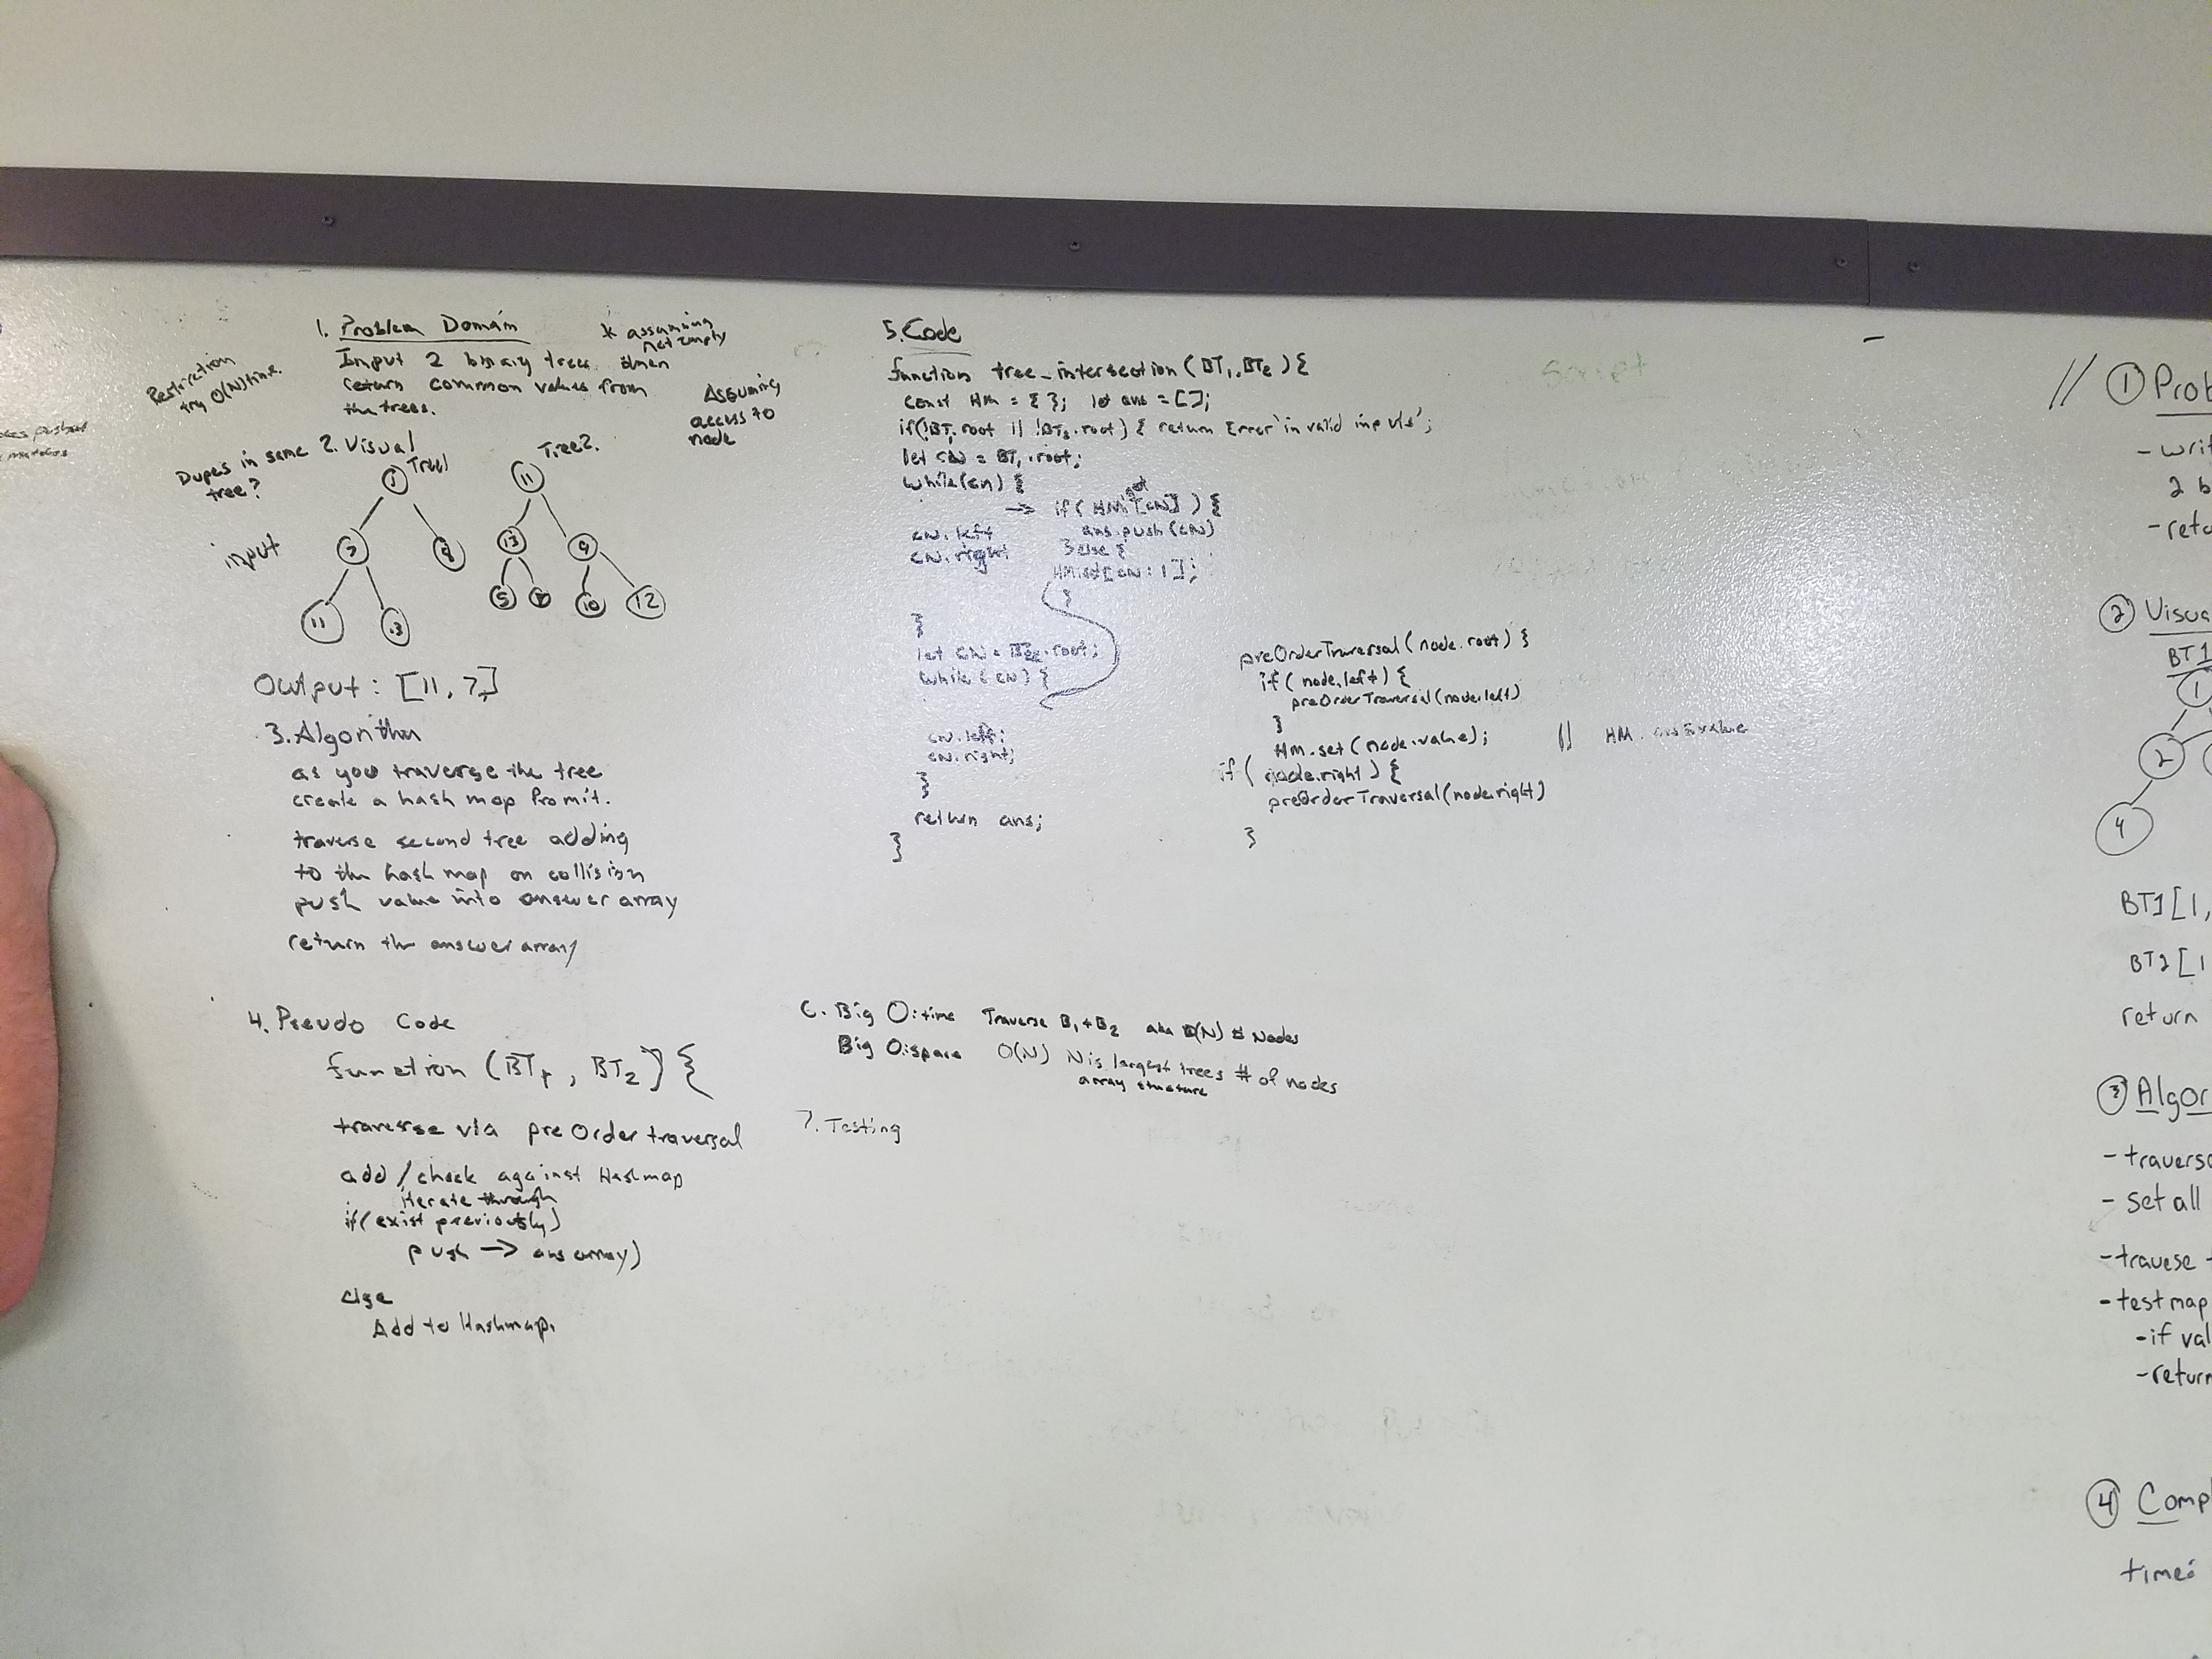 1. Problem Domain
* assuming
not empty
Input 2 binary trees then
return common values from
the trees.
Restriction
try O(N) time.
Assuming
access to
node
Dupes in same
tree?
2. Visual
Tree1
Tree2.
input
11
13
9
11
13
5
10
12
Output: [11, 7]
3. Algorithm
as you traverse the tree
create a hash map
traverse second tree adding
to the hash map on collision
push value into answer array
return the answer array
4. Pseudo Code
function (BT1, BT2) {
traverse via preOrder traversal
add / check against Hashmap
iterate through
if( exist previously)
push -> ans array)
else
Add to Hashmap.
5. Code
function tree_intersection (BT1, BT2) {
const HM = { }; let ans = [];
if(!BT1.root || !BT2.root) { return Error 'invalid inputs';
let CN = BT1.root;
while(cn) {
-> if( HM. [CN] ) {
cn.left
ans.push(CN)
cn.right
} else {
HM.set[CN: 1];
}
}
let CN = BT2.root;
while (cn) {
cn.left;
cn.right;
}
return ans;
}
preOrderTraversal( node.root) {
if( node.left) {
preOrderTraversal(node.left)
}
Hm.set(node.value);
|| HM.
if( node.right ) {
preOrderTraversal(node.right)
}
Big O:time Traverse B1+B2 aka O(N) # Nodes
Big O:space O(N) N is largest trees # of nodes
array structure
7. Testing
// 1 Prob
- writ
2 b
- retu
2 Visua
BT1
1
2
4
BT1 [1,
BT2 [1
return
3 Algor
- traverse
- set all
- travese
- test map
- if val
- return
4 Comp
time: